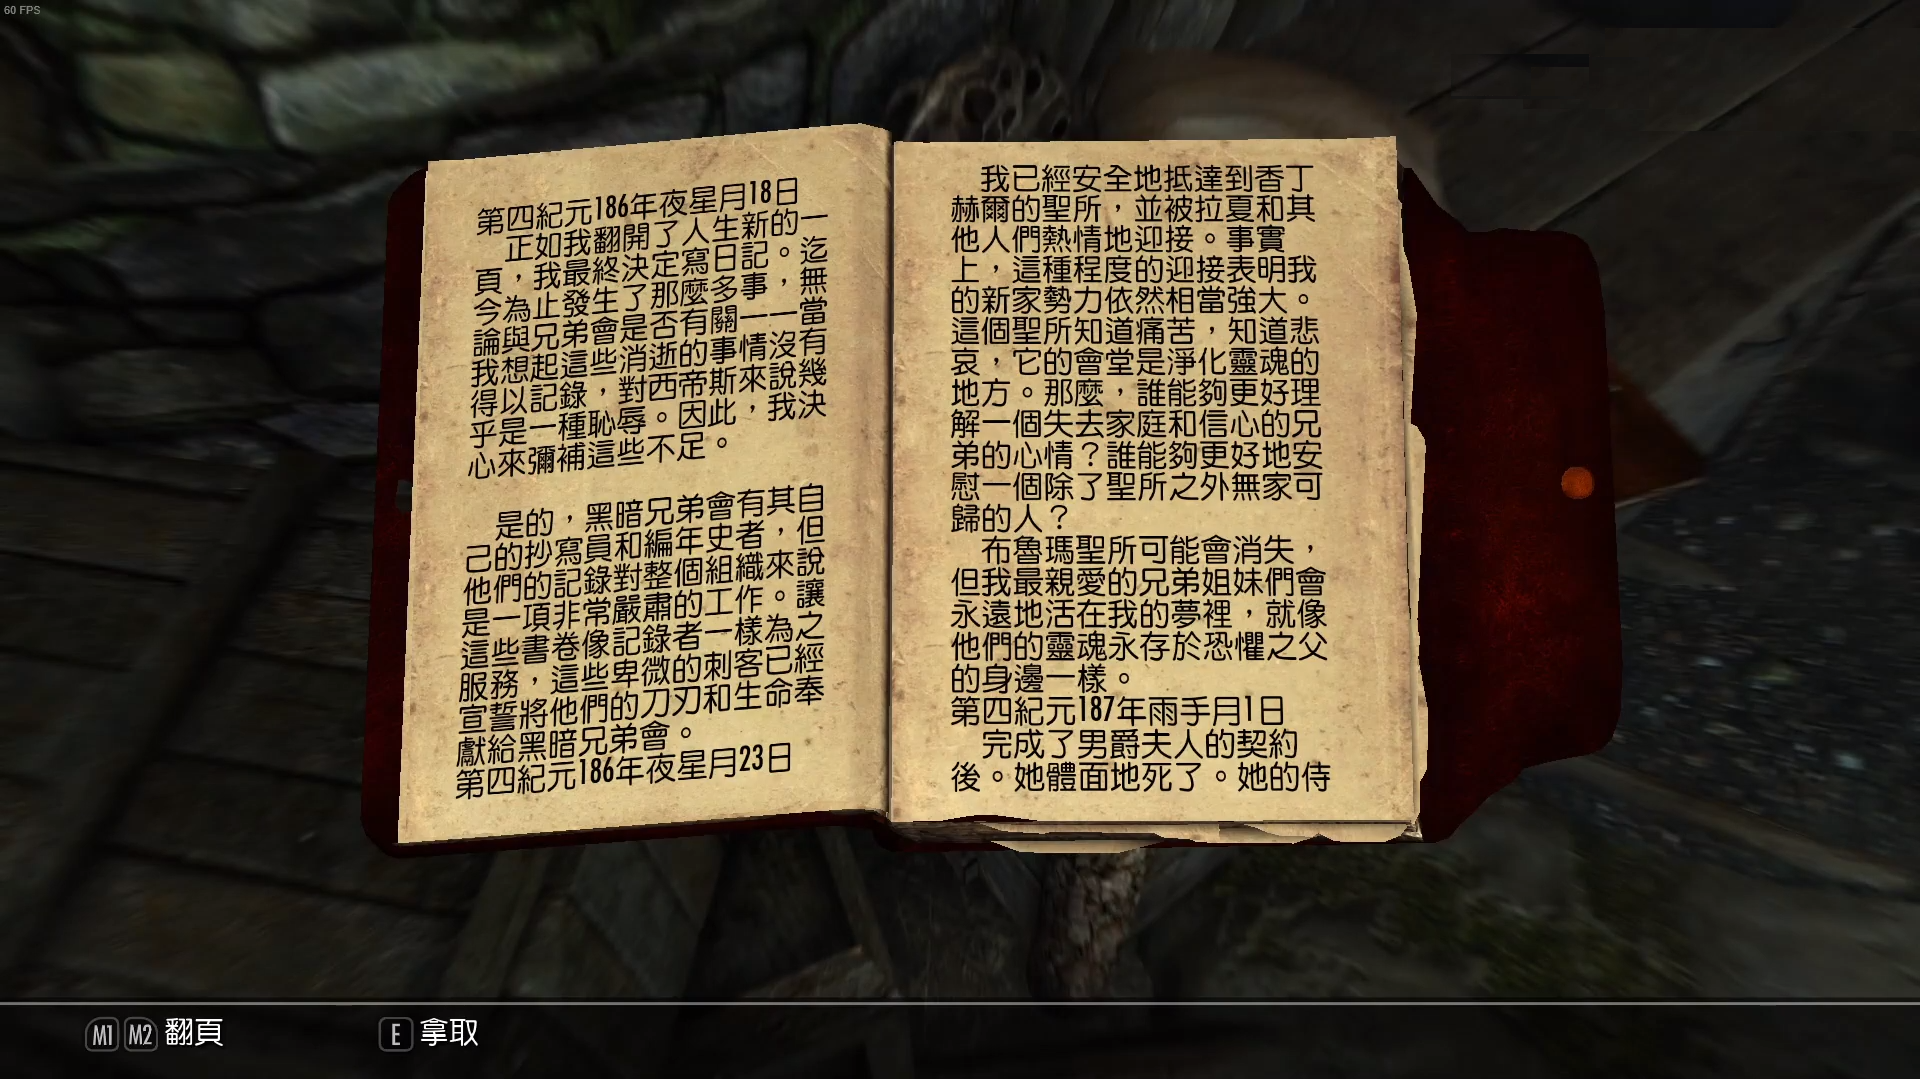 60 FPS
第四紀元186年夜星月18日
正如我翻開了人生新的一
頁，我最終決定寫日記。迄
今為止發生了那麼多事，無
論與兄弟會是否有關——當
我想起這些消逝的事情沒有
得以記錄，對西帝斯來說幾
乎是一種恥辱。因此，我決
心來彌補這些不足。
是的，黑暗兄弟會有其自
己的抄寫員和編年史者，但
他們的記錄對整個組織來說
是一項非常嚴肅的工作。讓
這些書卷像記錄者一樣為之
服務，這些卑微的刺客已經
宣誓將他們的刀刃和生命奉
獻給黑暗兄弟會。
第四紀元186年夜星月23日
我已經安全地抵達到香丁
赫爾的聖所，並被拉夏和其
他人們熱情地迎接。事實
上，這種程度的迎接表明我
的新家勢力依然相當強大。
這個聖所知道痛苦，知道悲
哀，它的會堂是淨化靈魂的
地方。那麼，誰能夠更好理
解一個失去家庭和信心的兄
弟的心情？誰能夠更好地安
慰一個除了聖所之外無家可
歸的人？
布魯瑪聖所可能會消失，
但我最親愛的兄弟姐妹們會
永遠地活在我的夢裡，就像
他們的靈魂永存於恐懼之父
的身邊一樣。
第四紀元187年雨手月1日
完成了男爵夫人的契約
後。她體面地死了。她的侍
M1 M2 翻頁
E 拿取